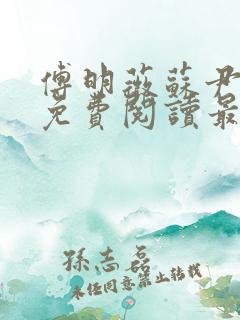 傅明薇蘇尹
免費閱讀最
孫志磊
未经同意禁止转载